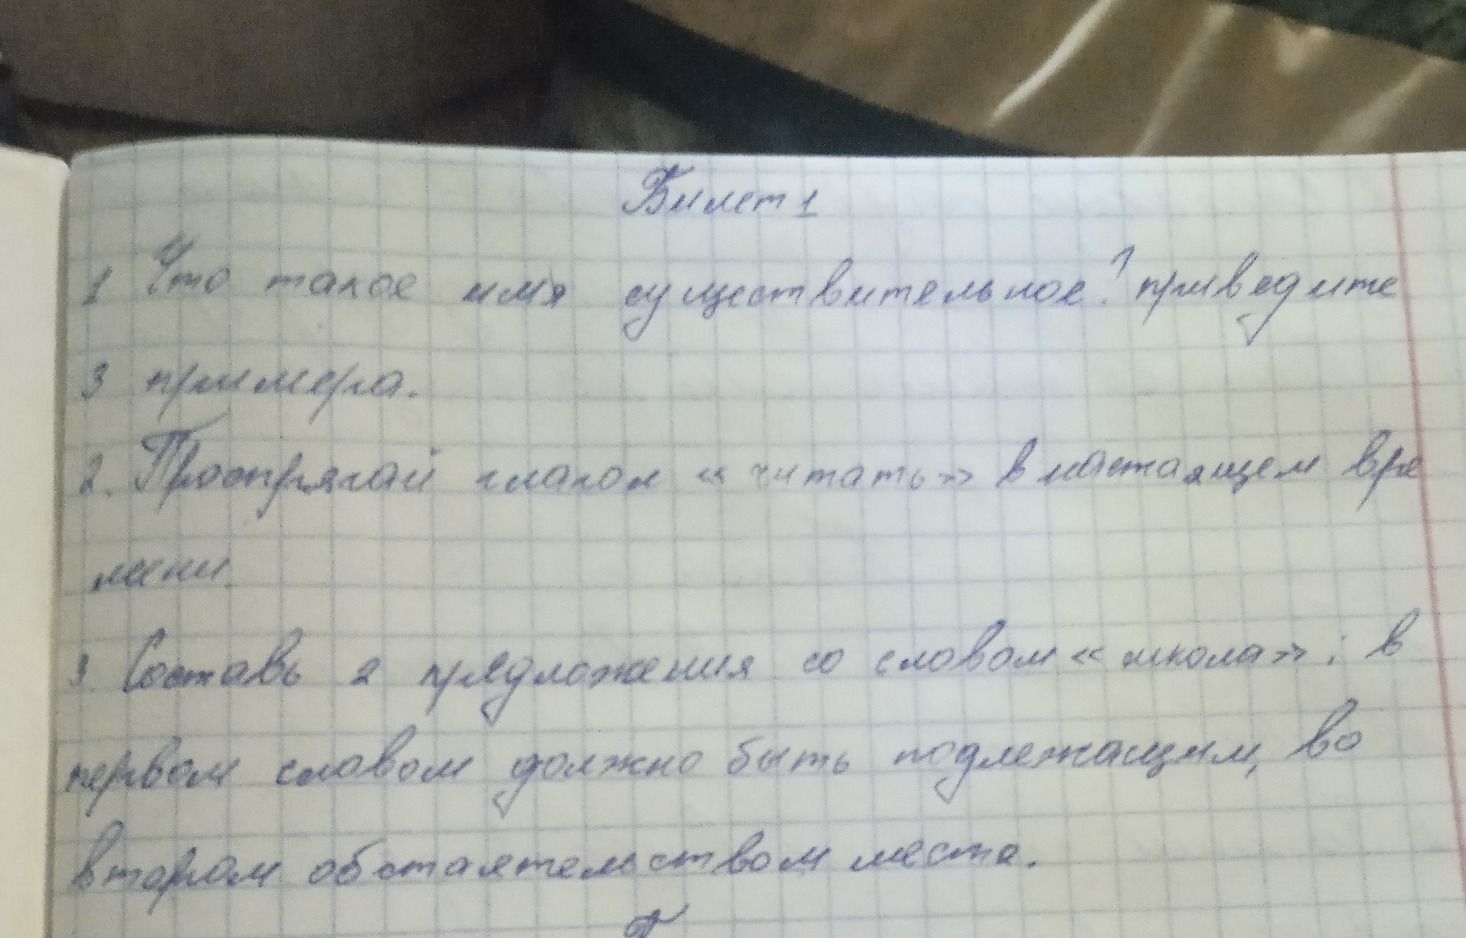 Билет 1
1 Что такое имя существительное? приведите
3 примера.
2. Проспрягай глагол «читать» в настаящем вре
мени.
3 Составь 2 предложения со словом «школа»: в
первом словом должно быть подлежащим, во
втором обстаятельством места.